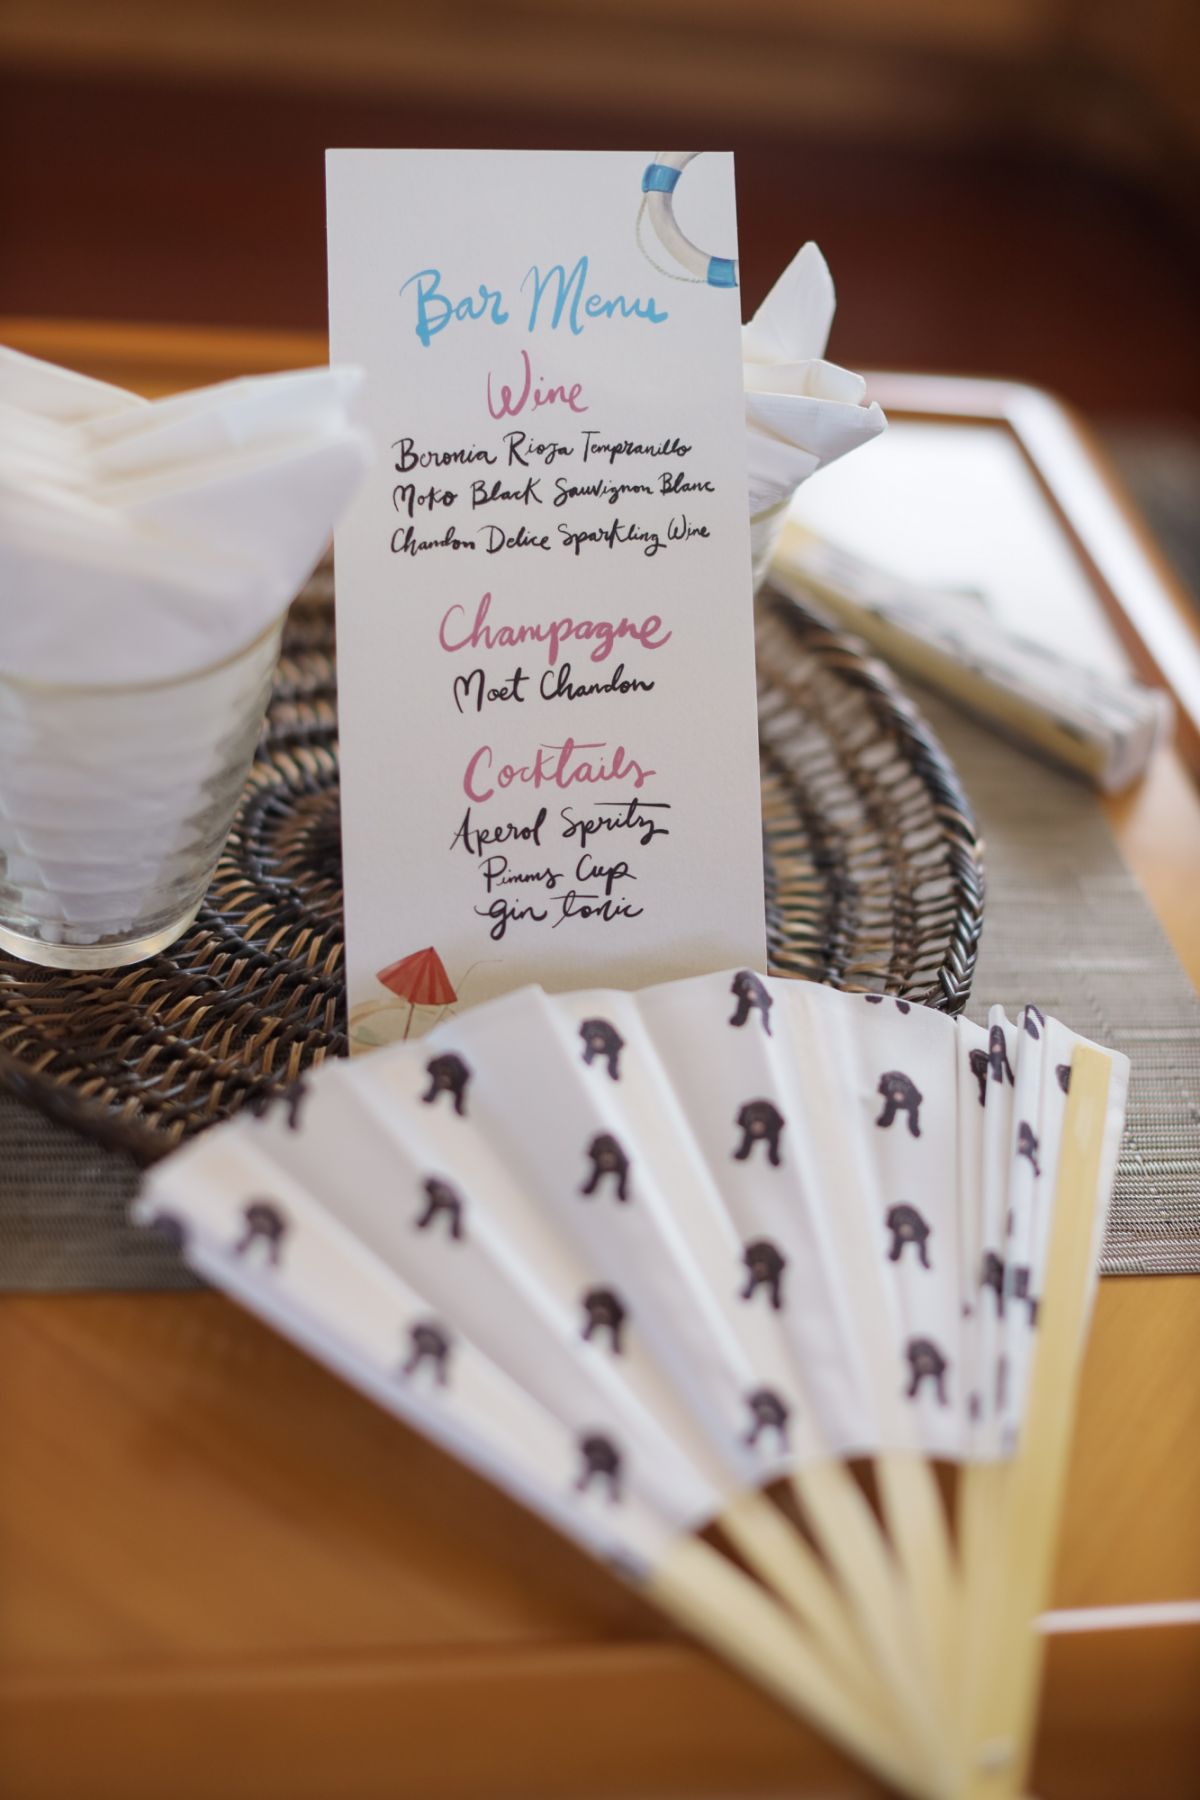 Bar Menu
Wine
Beronia Rioja Tempranillo
Moko Black Sauvignon Blanc
Chandon Delice Sparkling Wine
Champagne
Moet Chandon
Cocktails
Aperol Spritz
Pimms Cup
gin tonic